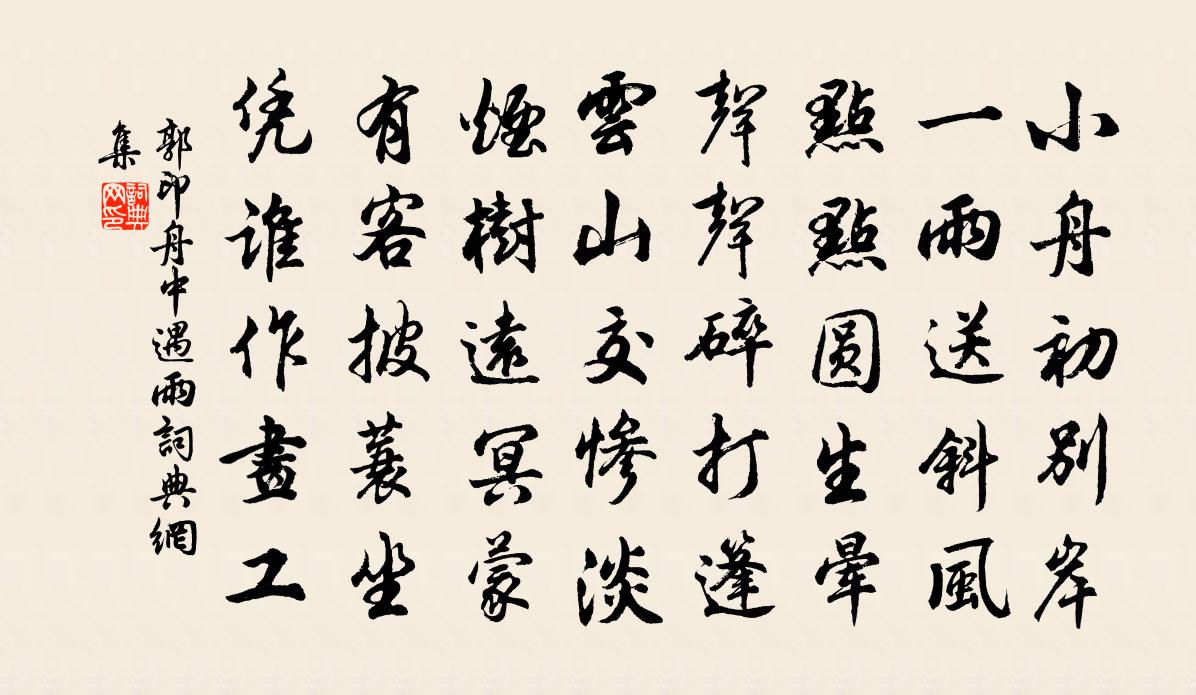 小舟初別岸
一雨送斜風
點點圆生暈
聲聲碎打篷
雲山交慘淡
煙樹遠冥蒙
有客披蓑坐
凭誰作畫工
郭印舟中遇雨詞典網
集
詞典
网印